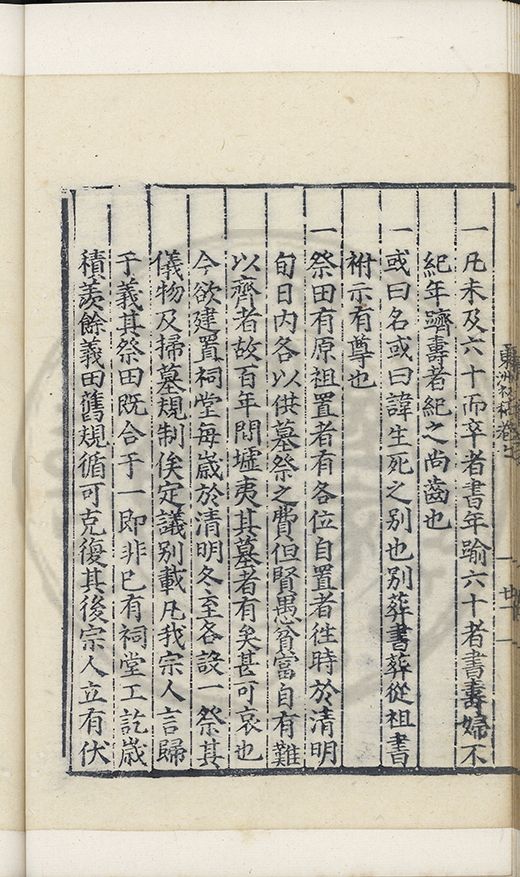 一凡未及六十而卒者書年踰六十者書壽婦不
紀年躋壽者紀之尚齒也
一或曰名或曰諱生死之别也别葬書葬從祖書
祔示有尊也
一祭田有原祖置者有各位自置者徃時於清明
旬日内各以供墓祭之費但賢愚貧富自有難
以齊者故百年間墟夷其墓者有矣甚可哀也
今欲建置祠堂每歲於清明冬至各設一祭其
儀物及掃墓規制俟定議别載凡我宗人言歸
于義其祭田既合于一即非已有祠堂工訖歲
積羡餘義田舊規循可克復其後宗人立有伏